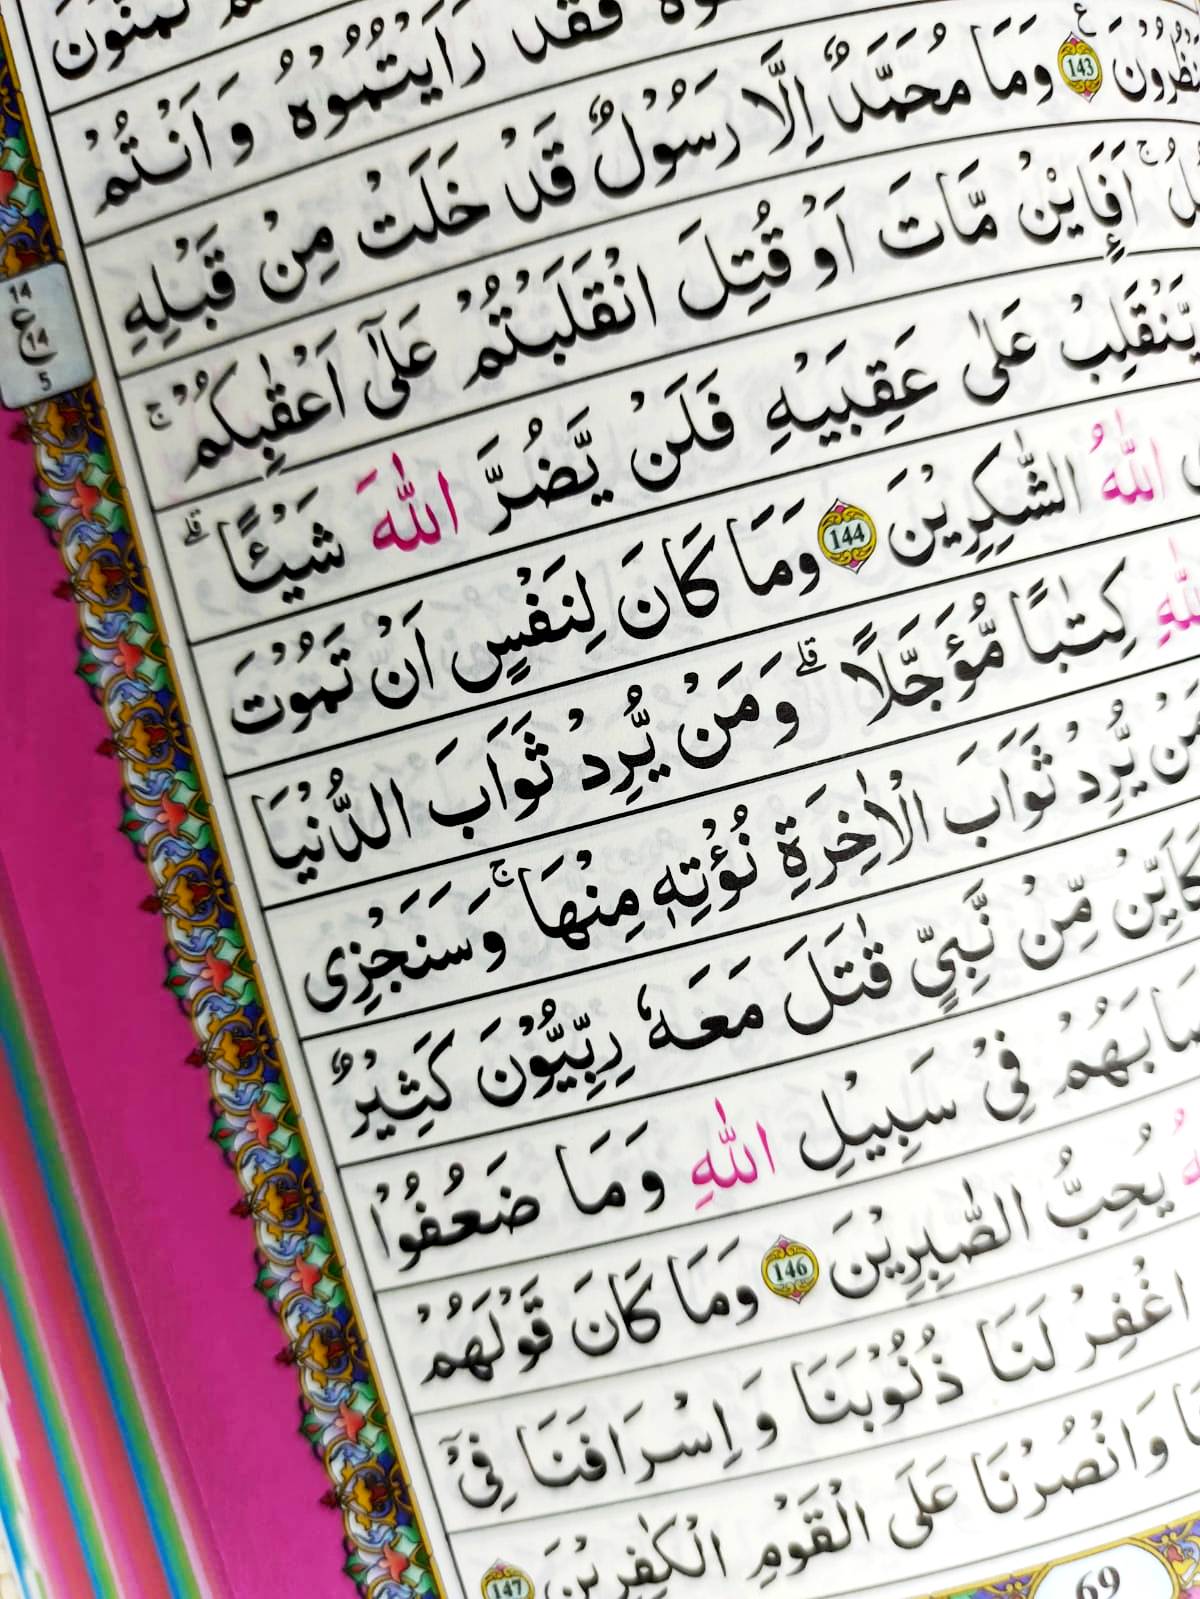 تَمَنَّوْنَ
فَقَدْ رَاَيْتُمُوْهُ وَاَنْتُمْ
تَنْظُرُوْنَ 143 ع وَمَا مُحَمَّدٌ اِلَّا رَسُوْلٌ ۚ قَدْ خَلَتْ مِنْ قَبْلِهِ
ج اَفَا۟ئِنْ مَّاتَ اَوْ قُتِلَ انْقَلَبْتُمْ عَلٰٓى اَعْقَابِكُمْ ؕ ج
14 ع 14 5
يَّنْقَلِبْ عَلٰى عَقِبَيْهِ فَلَنْ يَّضُرَّ اللّٰهَ شَيْـًٔا ۗ
اللّٰهُ الشّٰكِرِيْنَ 144 وَمَا كَانَ لِنَفْسٍ اَنْ تَمُوْتَ
كِتٰبًا مُّؤَجَّلًا ۗ وَمَنْ يُّرِدْ ثَوَابَ الدُّنْيَا
يُّرِدْ ثَوَابَ الْاٰخِرَةِ نُؤْتِهٖ مِنْهَا ۚ وَسَنَجْزِى
مِّنْ نَّبِىٍّ قٰتَلَ مَعَهٗ رِبِّيُّوْنَ كَثِيْرٌ ۚ
فِىْ سَبِيْلِ اللّٰهِ وَمَا ضَعُفُوْا
يُحِبُّ الصّٰبِرِيْنَ 146 وَمَا كَانَ قَوْلَهُمْ
اغْفِرْ لَنَا ذُنُوْبَنَا وَاِسْرَافَنَا فِىْٓ
وَانْصُرْنَا عَلَى الْقَوْمِ الْكٰفِرِيْنَ 147
69